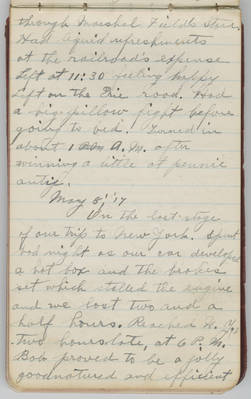 through Marshal Fields Store
Had liquid refreshments
at the railroads expense
Left at 11:30 feeling happy
Left on the Erie road. Had
a big pillow fight before
going to bed. Turned in
about 1 A.M. after
winning a little at pennie
antie.
May 8, '17
On the last stage
of our trip to New York. Spent
bad night as our car developed
a hot box and the brakes
set which stalled the engine
and we lost two and a
half hours. Reached N.Y.
two hours late, at 6 P.M.
Bob proved to be a jolly
goodnatured and efficient